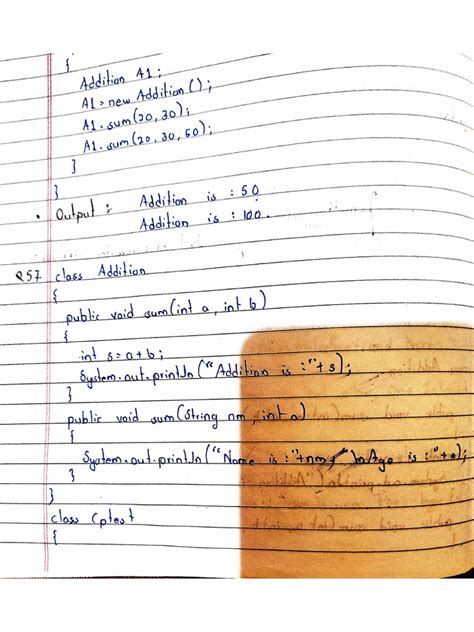 {
Addition A1;
A1 = new Addition();
A1.sum(20, 30);
A1.sum(20, 30, 50);
}
}
• Output : Addition is : 50
Addition is : 100.
Q57. class Addition
{
public void sum(int a, int b)
{
int s = a + b;
System.out.println("Addition is :" + s);
}
public void sum(String nm, int a)
{
System.out.println("Name is :"+nm+ "\nAge is :"+a);
}
}
class Cptest
{